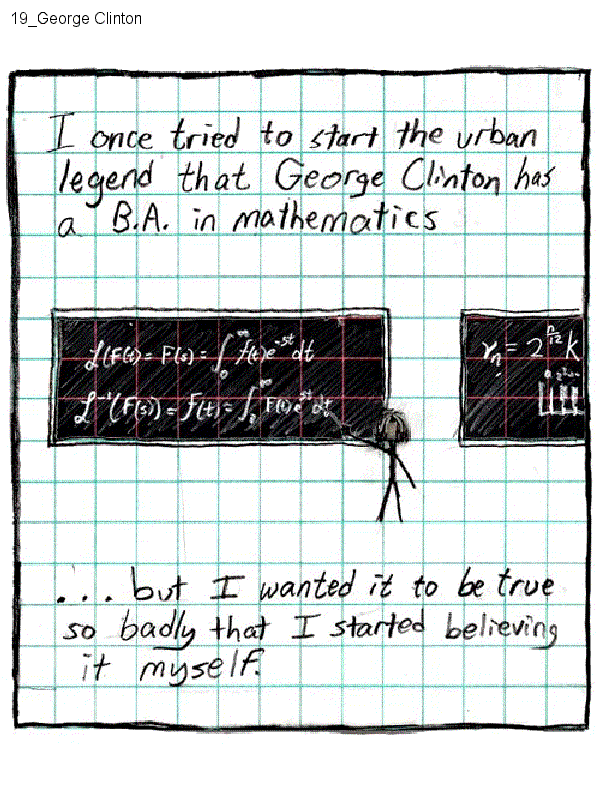 19_George Clinton
I once tried to start the urban
legend that George Clinton has
a B.A. in mathematics
ℒ(F(t)) = F(s) = ∫₀^∞ f(t)e^-st dt
ℒ⁻¹(F(s)) = f(t) = ∫ ^∞ F(t)e^st dt
γₙ = 2^(n/12) k
...but I wanted it to be true
so badly that I started believing
it myself.